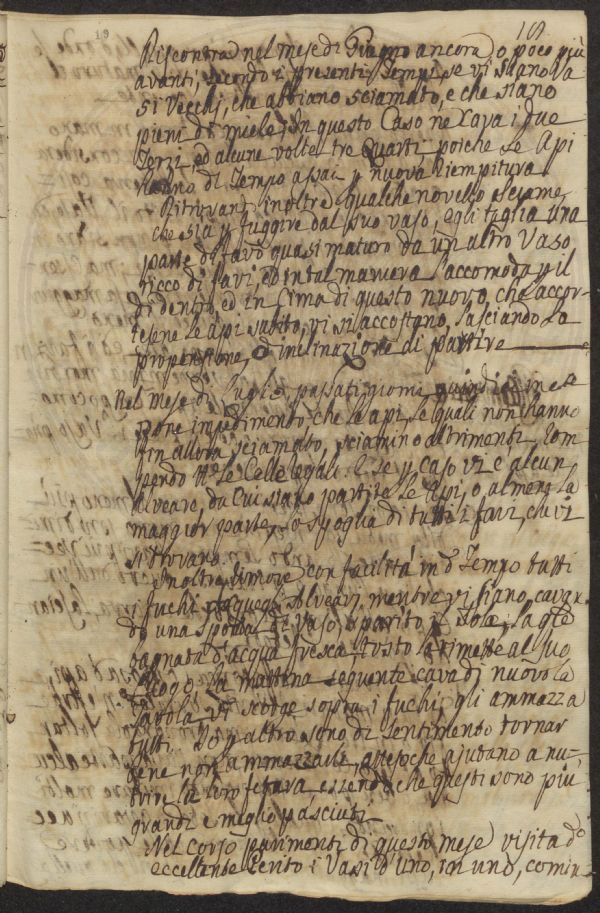 19 168
Riscontra nel mese di Giugno ancora, o poco più
avanti, secondo i presenti Tempi, se vi siano Va
si Vecchi, che abbiano sciamato, e che siano
pieni di miele; In questo Caso ne Cava i due
Terzi, ed alcune volte tre Quarti, poiche le Api
hanno di Tempo assai p nuova Riempitura
Ritrovando inoltre qualche novello sciame,
che sia p fuggire dal suo vaso, egli taglia una
parte di favo quasi maturo da un altro Vaso
ricco di favi, ed in tal maniera l'accomoda p il
di dentro, ed in Cima di questo nuovo, che accor-
tesene le api subito, vi si accostano, lasciando la
propensione, ed inclinazione di partire
Nel mese di Luglio, passati giorni quindici
pone impedimento, che le api, le quali non hanno
fin allora sciamato, sciamino altrimenti, Rom
pendo le Celle legali. E se p caso vi è alcun
alveare, da cui siano partite le Api, o almen la
maggior parte, lo spoglia di tutti i favi, che vi
si trovano.
Inoltre rimove con facilità in d.o Tempo tutti
i fuchi da quegli Alveari, mentre vi siano, cavan
do una sponda di Vaso, sparito il sole, la qle
bagnata d'acqua fresca, tosto la rimette al suo
luogo. La mattina seguente cava di nuovo la
tavola, vi scorge sopra i fuchi, gli ammazza
tutti. Io p altro sono di sentimento tornar
bene non ammazzarli, attesoche ajutano a nu-
trire la loro fetura, essendo che questi sono più
grandi e meglio pasciuti
Nel corso parimenti di questo mese visita d.o
eccellente Perito i Vasi d'uno, in uno, comin-